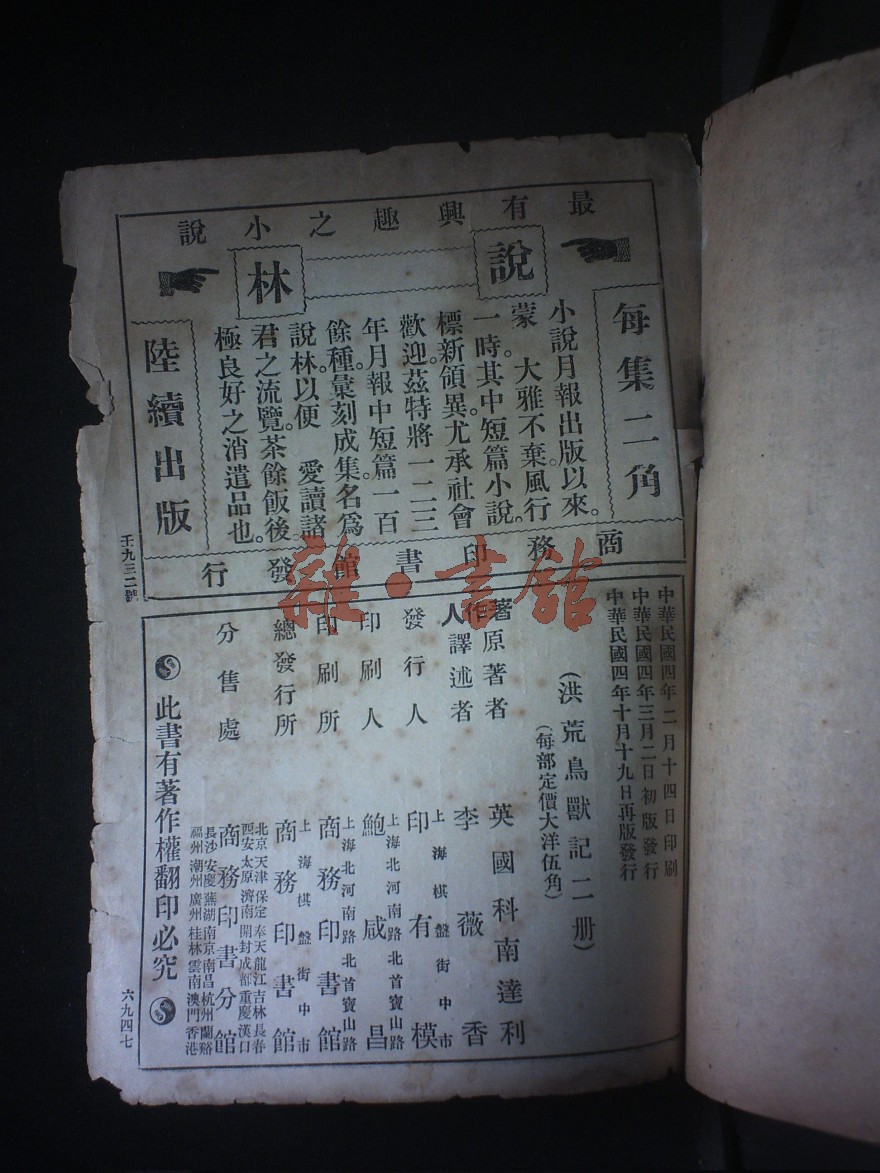 最有興趣之小說
說林
每集二角
小說月報出版以來。
蒙　大雅不棄風行
一時。其中短篇小說。
標新領異尤承社會
歡迎。茲特將一二三
年月報中短篇一百
餘種。彙刻成集名爲
說林以便　愛讀諸
君之流覽。茶餘飯後。
極良好之消遣品也。
陸續出版
商務印書館發行
壬九三二號
中華民國四年二月十四日印刷
中華民國四年三月二日初版發行
中華民國四年十月十九日再版發行
（洪荒鳥獸記二册）
（每部定價大洋伍角）
著作人
原著者　英國科南達利
譯述者　李薇香
發行人　上海棋盤街中市　印有模
印刷人　上海北河南路北首寶山路　鮑咸昌
印刷所　上海北河南路北首寶山路　商務印書館
總發行所　上海棋盤街中市　商務印書館
分售處
北京天津保定奉天龍江吉林長春
西安太原濟南開封成都重慶漢口
商務印書分館
長沙安慶蕪湖南京南昌杭州蘭谿
福州潮州廣州桂林雲南澳門香港
此書有著作權翻印必究
六九四七
雜·書館